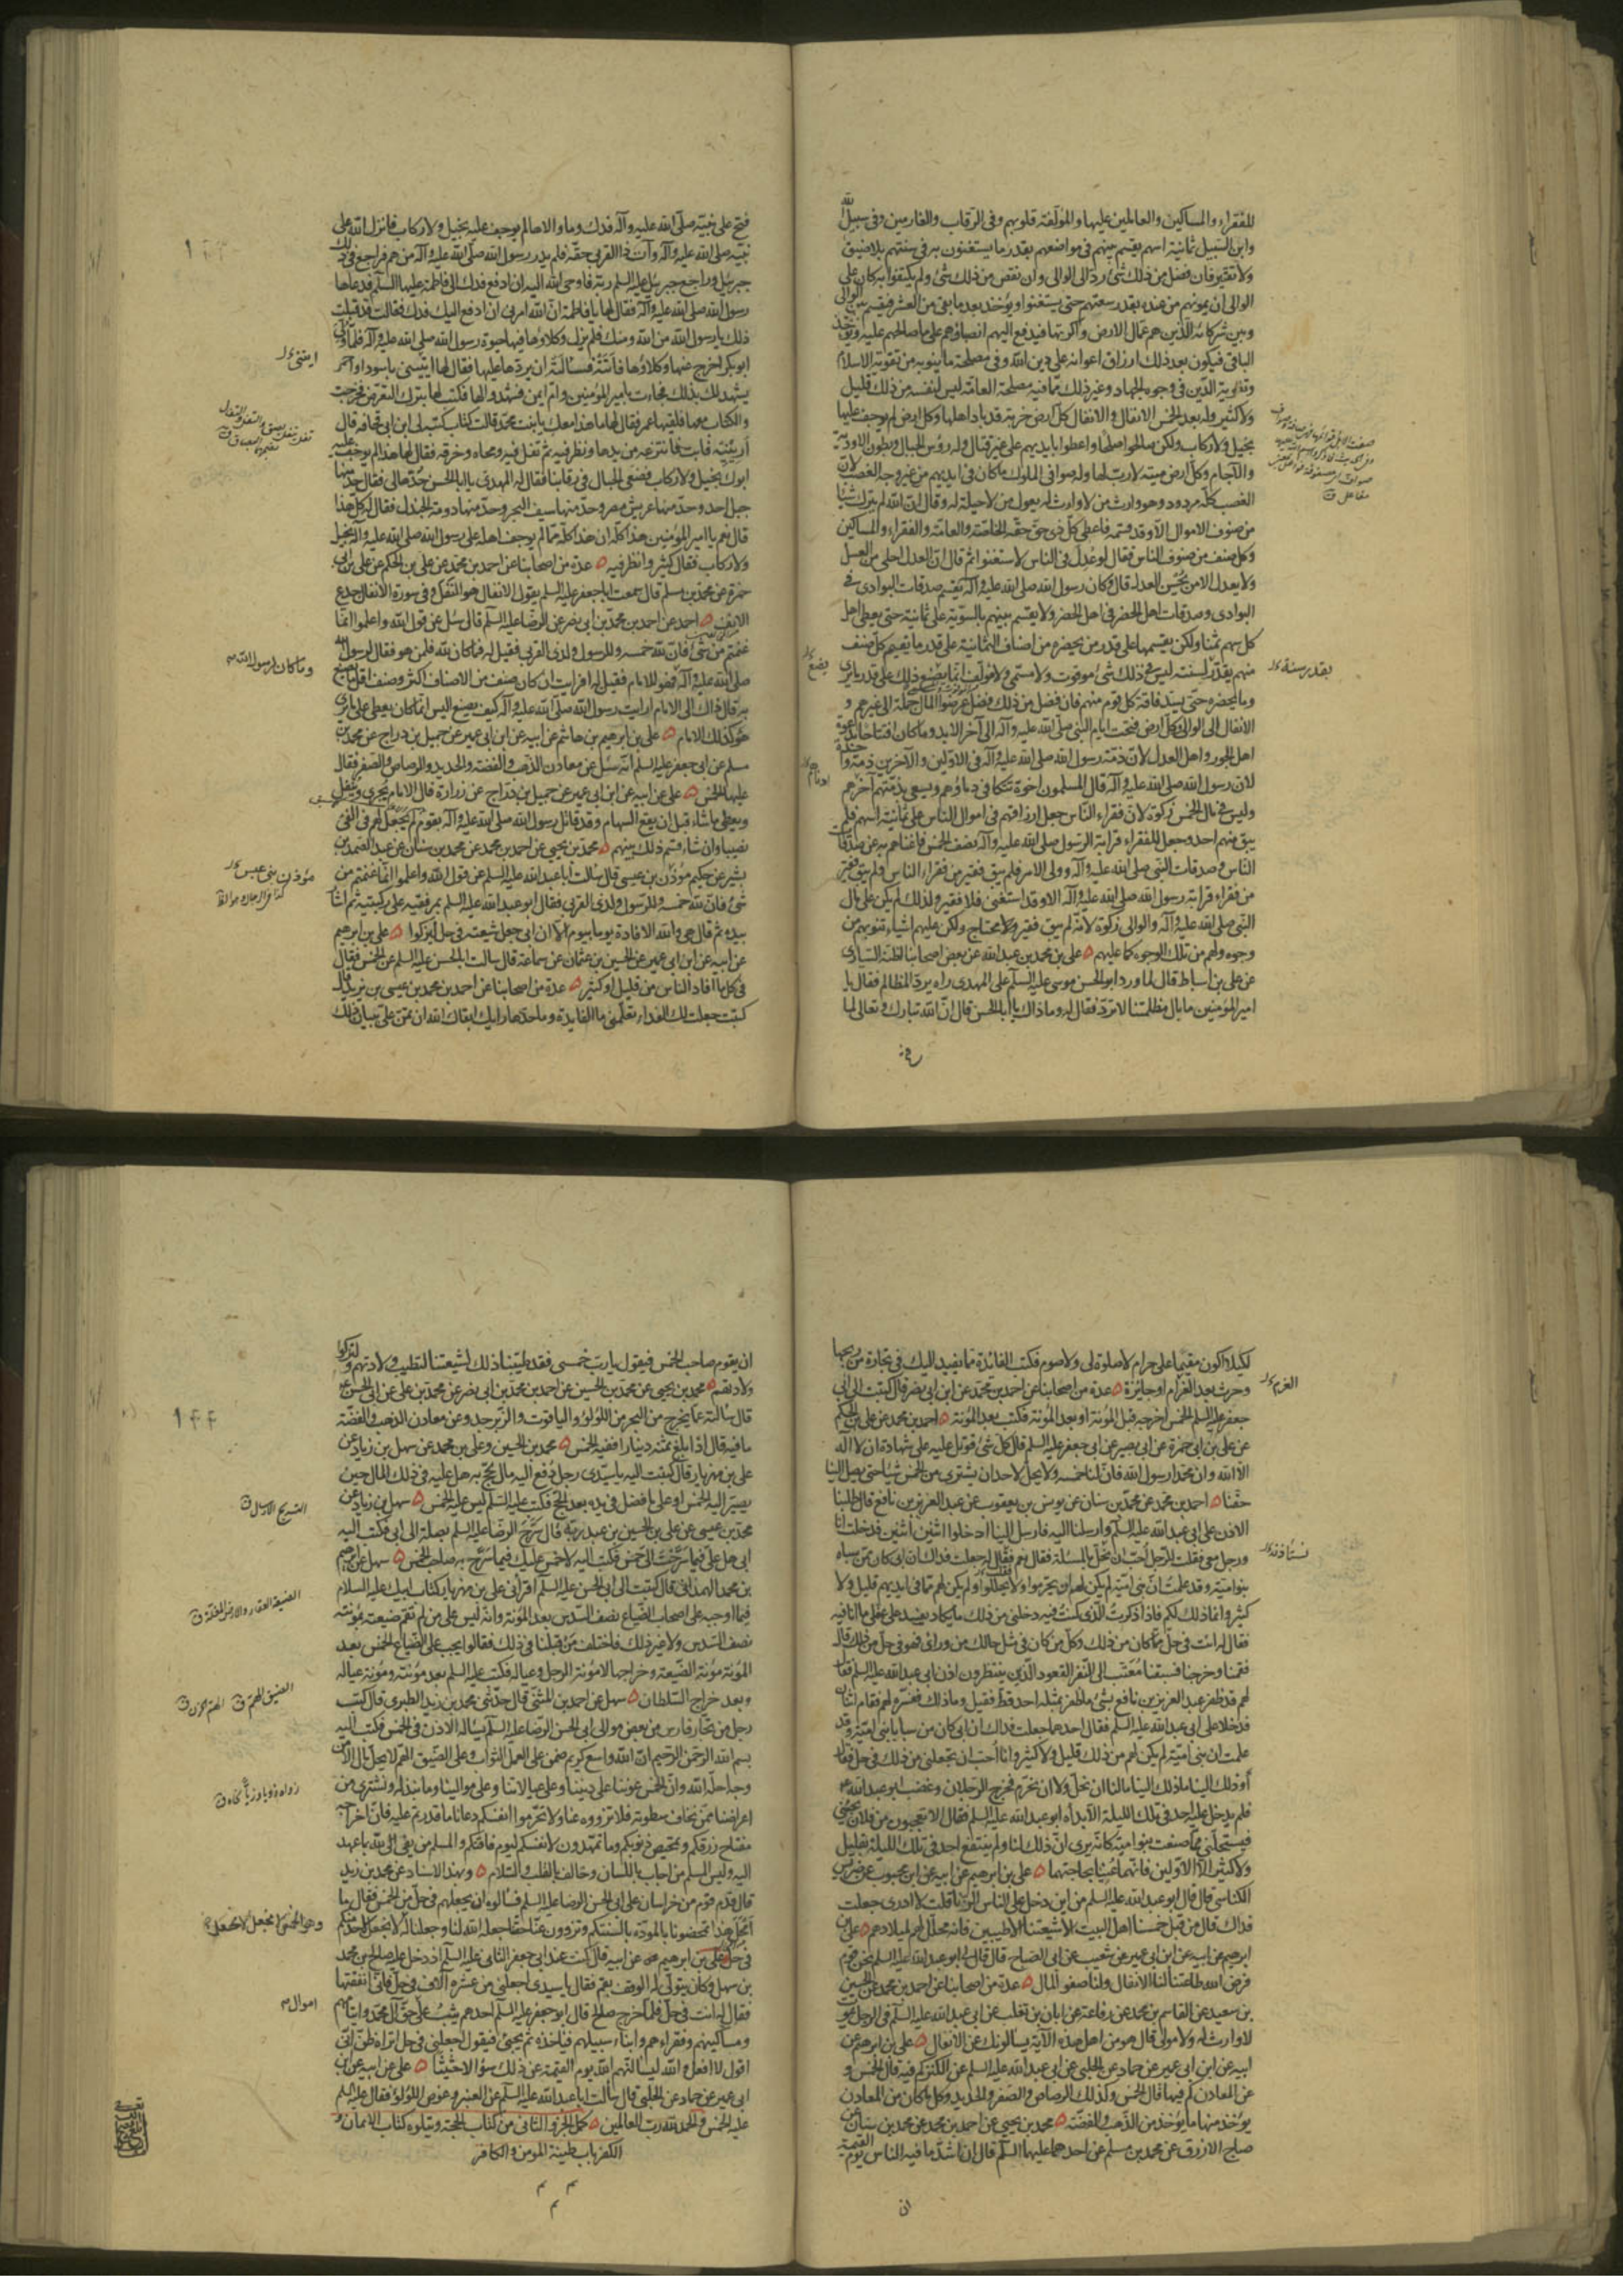 للفقراء والمساكين والعاملين عليها والمؤلفة قلوبهم وفى الرقاب والغارمين وفى سبيل الله
وابن السبيل ثمانية اسهم يقسم بينهم فى مواضعهم بقدر ما يستغنون به فى سنتهم بلا ضيق
ولا تقتير فان فضل من ذلك شئ رد الى الوالى وان نقص من ذلك شئ ولم يكتفوا به كان على
الوالى ان يمونهم من عنده بقدر سعتهم حتى يستغنوا ويؤخذ بعد ما بقى من العشر فيقسم بين الوالى
وبين شركائه الذين هم عمال الارض واكرتها فيدفع اليهم انصباؤهم على ما صالحهم عليه ويؤخذ
الباقى فيكون بعد ذلك ارزاق اعوانه على دين الله وفى مصلحة ما ينوبه من تقوية الاسلام
وتقوية الدين فى وجوه الجهاد وغير ذلك مما فيه مصلحة العامة ليس لنفسه من ذلك قليل
ولا كثير وله بعد الخمس الانفال والانفال كل ارض خربة قد باد اهلها وكل ارض لم يوجف عليها
بخيل ولا ركاب ولكن صالحوا صلحا واعطوا بايديهم على غير قتال وله رؤس الجبال وبطون الاودية
والآجام وكل ارض ميتة لا رب لها وله صوافى الملوك ما كان فى ايديهم من غير وجه الغصب لان
الغصب كله مردود وهو وارث من لا وارث له يعول من لا حيلة له وقال ان الله لم يترك شيئا
من صنوف الاموال الا وقد قسمه فاعطى كل ذى حق حقه الخاصة والعامة والفقراء والمساكين
وكل صنف من صنوف الناس فقال لو عدل فى الناس لاستغنوا ثم قال ان العدل احلى من العسل
ولا يعدل الا من يحسن العدل قال وكان رسول الله صلى الله عليه وآله يقسم صدقات البوادى فى
البوادى وصدقات اهل الحضر فى اهل الحضر ولا يقسم بينهم بالسوية على ثمانية حتى يعطى اهل
كل سهم ثمنا ولكن يقسمها على قدر من يحضره من اصناف الثمانية على قدر ما يقيم كل صنف
منهم يقدر لسنته ليس فى ذلك شئ موقوت ولا مسمى ولا مؤلف انما يصنع ذلك على قدر ما يرى
وما يحضره حتى يسد فاقة كل قوم منهم فان فضل من ذلك فضل عرضوا المال جملة الى غيرهم و
الانفال الى الوالى وكل ارض فتحت ايام النبى صلى الله عليه وآله الى آخر الابد وما كان افتتاحا بدعوة
اهل الجور واهل العدل لان ذمة رسول الله صلى الله عليه وآله فى الاولين والآخرين ذمة واحدة
لان رسول الله صلى الله عليه وآله قال المسلمون اخوة تتكافى دماؤهم ويسعى بذمتهم آخرهم
وليس فى مال الخمس زكوة لان فقراء الناس جعل ارزاقهم فى اموال الناس على ثمانية اسهم فلم
يبق منهم احد وجعل للفقراء قرابة الرسول صلى الله عليه وآله نصف الخمس فاغناهم به عن صدقات
الناس وصدقات النبى صلى الله عليه وآله وولى الامر فلم يبق فقير من فقراء الناس ولم يبق فقير
من فقراء قرابة رسول الله صلى الله عليه وآله الا وقد استغنى فلا فقير ولذلك لم يكن على مال
النبى صلى الله عليه وآله والوالى زكوة لانه لم يبق فقير ولا محتاج ولكن عليهم اشياء تنوبهم من
وجوه ولهم من تلك الوجوه كما عليهم على بن محمد بن عبد الله عن بعض اصحابنا اظنه السيارى
عن على بن اسباط قال لما ورد ابو الحسن موسى عليه السلم على المهدى رآه يرد المظالم فقال يا
امير المؤمنين ما بال مظلمتنا لا ترد فقال له وما ذاك يا ابا الحسن قال ان الله تبارك وتعالى لما
بقدر سنة
يضع
فتح على نبيه صلى الله عليه وآله فدك وما والاها لم يوجف عليه بخيل ولا ركاب فانزل الله على
نبيه صلى الله عليه وآله وآت ذا القربى حقه فلم يدر رسول الله صلى الله عليه وآله من هم فراجع فى ذلك
جبرئيل وراجع جبرئيل عليه السلم ربه فاوحى الله اليه ان ادفع فدك الى فاطمة عليها السلم فدعاها
رسول الله صلى الله عليه وآله فقال لها يا فاطمة ان الله امرنى ان ادفع اليك فدك فقالت قد قبلت
ذلك يا رسول الله من الله ومنك فلم يزل وكلاؤها فيها حيوة رسول الله صلى الله عليه وآله فلما ولى
ابو بكر اخرج عنها وكلاؤها فاتته فسالته ان يردها عليها فقال لها ايتينى باسود او احمر
يشهد لك بذلك فجاءت بامير المؤمنين وام ايمن فشهدوا لها فكتب لها بترك التعرض فخرجت
والكتاب معها فلقيها عمر فقال لها ما هذا معك يا بنت محمد قالت كتاب كتبه لى ابن ابى قحافة قال
ارينيه فابت فانتزعه من يدها ونظر فيه ثم تفل فيه ومحاه وخرقه فقال لها هذا لم يوجف عليه
ابوك بخيل ولا ركاب فضعى الجبال فى رقابنا فقال له المهدى يا ابا الحسن حدها لى فقال حد منها
جبل احد وحد منها عريش مصر وحد منها سيف البحر وحد منها دومة الجندل فقال له كل هذا
قال نعم يا امير المؤمنين هذا كله ان هذا كله مما لم يوجف اهله على رسول الله صلى الله عليه وآله بخيل
ولا ركاب فقال كثير وانظر فيه عدة من اصحابنا عن احمد بن محمد عن على بن الحكم عن على بن ابى
حمزة عن محمد بن مسلم قال سمعت ابا جعفر عليه السلم يقول الانفال هو النفل وفى سورة الانفال جدع
الانف احمد عن احمد بن محمد بن ابى نصر عن الرضا عليه السلم قال سئل عن قول الله واعلموا انما
غنمتم من شئ فان لله خمسه وللرسول ولذى القربى فقيل له فما كان لله فلمن هو فقال لرسول الله
صلى الله عليه وآله فهو للامام فقيل له افرايت ان كان صنف من الاصناف اكثر وصنف اقل ما يصنع
به قال ذاك الى الامام ارايت رسول الله صلى الله عليه وآله كيف يصنع اليس انما كان يعطى على ما يرى
هو كذلك الامام على بن ابرهيم بن هاشم عن ابيه عن ابن ابى عمير عن جميل بن دراج عن محمد بن
مسلم عن ابى جعفر عليه السلم انه سئل عن معادن الذهب والفضة والحديد والرصاص والصفر فقال
عليها الخمس على عن ابيه عن ابن ابى عمير عن جميل بن دراج عن زرارة قال الامام يجرى وينفل
ويعطى ما شاء قبل ان يقع السهام وقد قاتل رسول الله صلى الله عليه وآله بقوم لم يجعل لهم فى الفئ
نصيبا وان شاء قسم ذلك بينهم محمد بن يحيى عن احمد بن محمد عن محمد بن سنان عن عبد الصمد بن
بشير عن حكيم مؤذن بن عيسى قال سالت ابا عبد الله عليه السلم عن قول الله واعلموا انما غنمتم من
شئ فان لله خمسه وللرسول ولذى القربى فقال ابو عبد الله عليه السلم بمرفقيه على ركبتيه ثم اشار
بيده ثم قال هى والله الافادة يوما بيوم الا ان ابى جعل شيعته فى حل ليزكوا على بن ابرهيم
عن ابيه عن ابن ابى عمير عن الحسين بن عثمان عن سماعة قال سالت ابا الحسن عليه السلم عن الخمس فقال
فى كل ما افاد الناس من قليل او كثير عدة من اصحابنا عن احمد بن محمد بن عيسى بن يزيد قال
كتبت جعلت لك الفداء تعلمنى ما الفايدة وما حدها رايك ابقاك الله ان تمن على ببيان ذلك
ايتنى
وما كان لرسول الله
مؤذن بنى عبس
لكيلا اكون مقيما على حرام لا صلوة لى ولا صوم فكتب الفائدة مما يفيد اليك فى تجارة من ربحها
وحرث بعد الغرام او جايزة عدة من اصحابنا عن احمد بن محمد عن ابن ابى نصر قال كتبت الى ابى
جعفر عليه السلم الخمس اخرجه قبل المؤنة او بعد المؤنة فكتب بعد المؤنة احمد بن محمد عن على بن الحكم
عن على بن ابى حمزة عن ابى بصير عن ابى جعفر عليه السلم قال كل شئ قوتل عليه على شهادة ان لا اله
الا الله وان محمدا رسول الله فان لنا خمسه ولا يحل لاحد ان يشترى من الخمس شيئا حتى يصل الينا
حقنا احمد بن محمد عن محمد بن سنان عن يونس بن يعقوب عن عبد العزيز بن نافع قال طلبنا
الاذن على ابى عبد الله عليه السلم وارسلنا اليه فارسل الينا ادخلوا اثنين اثنين فدخلت انا
ورجل معى فقلت للرجل احب ان تحل بالمسئلة فقال نعم فقال له جعلت فداك ان ابى كان ممن سباه
بنو امية وقد علمت ان بنى امية لم يكن لهم ان يحرموا ولا يحللوا ولم يكن لهم مما فى ايديهم قليل ولا
كثير وانما ذلك لكم فاذا ذكرت الذى كنت فيه دخلنى من ذلك ما يكاد يفسد على عقلى ما انا فيه
فقال له انت فى حل مما كان من ذلك وكل من كان فى مثل حالك من ورائى فهو فى حل من ذلك قال
فقمنا وخرجنا فسبقنا معتب الى النفر القعود الذين ينتظرون اذن ابى عبد الله عليه السلم فقال
لهم قد ظفر عبد العزيز بن نافع بشئ ما ظفر بمثله احد قط فقيل وما ذلك ففسره لهم فقام اثنان
فدخلا على ابى عبد الله عليه السلم فقال احدهما جعلت فداك ان ابى كان من سبايا بنى امية وقد
علمت ان بنى امية لم يكن لهم من ذلك قليل ولا كثير وانا احب ان تجعلنى من ذلك فى حل فقال
او ذلك الينا ما ذلك الينا ما لنا ان نحل ولا ان نحرم فخرج الرجلان وغضب ابو عبد الله
فلم يدخل عليه احد فى تلك الليلة الا بدأه ابو عبد الله عليه السلم فقال الا تعجبون من فلان يجيئنى
فيستحلنى مما صنعت بنو امية كانه يرى ان ذلك لنا ولم ينتفع احد فى تلك الليلة بقليل
ولا كثير الا الاولين فانهما عنيا بحاجتهما على بن ابرهيم عن ابيه عن ابن محبوب عن ضريس
الكناسى قال قال ابو عبد الله عليه السلم من اين دخل على الناس الزنا قلت لا ادرى جعلت
فداك قال من قبل خمسنا اهل البيت الا شيعتنا الاطيبين فانه محلل لهم لميلادهم على بن
ابرهيم عن ابيه عن ابن ابى عمير عن شعيب عن ابى الصباح قال قال لى ابو عبد الله عليه السلم نحن قوم
فرض الله طاعتنا لنا الانفال ولنا صفو المال عدة من اصحابنا عن احمد بن محمد عن الحسين
بن سعيد عن القاسم بن محمد عن رفاعة عن ابان بن تغلب عن ابى عبد الله عليه السلم فى الرجل يموت
لا وارث له ولا مولى قال هو من اهل هذه الآية يسالونك عن الانفال على بن ابرهيم عن
ابيه عن ابن ابى عمير عن حماد عن الحلبى عن ابى عبد الله عليه السلم عن الكنز كم فيه قال الخمس و
عن المعادن كم فيها قال الخمس وكذلك الرصاص والصفر والحديد وكل ما كان من المعادن
يؤخذ منها ما يؤخذ من الذهب والفضة محمد بن يحيى عن احمد بن محمد عن محمد بن سنان عن
صباح الازرق عن محمد بن مسلم عن احدهما عليهما السلم قال ان اشد ما فيه الناس يوم القيمة
ان
الغرم
نستاذنه
ان يقوم صاحب الخمس فيقول يا رب خمسى فقد طيبنا ذلك لشيعتنا لتطيب ولادتهم ولتزكوا
ولادتهم محمد بن يحيى عن محمد بن الحسين عن احمد بن محمد بن ابى نصر عن محمد بن على عن ابى الحسن
قال سالته عما يخرج من البحر من اللؤلؤ والياقوت والزبرجد وعن معادن الذهب والفضة
ما فيه قال اذا بلغ ثمنه دينارا ففيه الخمس محمد بن الحسين وعلى بن محمد عن سهل بن زياد عن
على بن مهزيار قال كتبت اليه يا سيدى رجل دفع اليه مال يحج به هل عليه فى ذلك المال حين
يصير اليه الخمس او على ما فضل فى يده بعد الحج فكتب عليه السلم ليس عليه الخمس سهل بن زياد عن
محمد بن عيسى عن على بن الحسين بن عبد ربه قال سرح الرضا عليه السلم بصلة الى ابى فكتب اليه
ابى هل على فيما سرحت الى خمس فكتب اليه لا خمس عليك فيما سرح به صاحب الخمس سهل عن ابرهيم
بن محمد الهمدانى قال كتبت الى ابى الحسن عليه السلم اقرأنى على بن مهزيار كتاب ابيك عليه السلام
فيما اوجبه على اصحاب الضياع نصف السدس بعد المؤنة وانه ليس على من لم تقم ضيعته بمؤنته
نصف السدس ولا غير ذلك فاختلف من قبلنا فى ذلك فقالوا يجب على الضياع الخمس بعد
المؤنة مؤنة الضيعة وخراجها لا مؤنة الرجل وعياله فكتب عليه السلم بعد مؤنته ومؤنة عياله
وبعد خراج السلطان سهل عن احمد بن المثنى قال حدثنى محمد بن زيد الطبرى قال كتب
رجل من تجار فارس من بعض موالى ابى الحسن الرضا عليه السلم يساله الاذن فى الخمس فكتب اليه
بسم الله الرحمن الرحيم ان الله واسع كريم ضمن على العمل الثواب وعلى الضيق الهم لا يحل مال الا من
وجه احله الله وان الخمس عوننا على ديننا وعلى عيالاتنا وعلى موالينا وما نبذله ونشترى من
اعراضنا ممن نخاف سطوته فلا تزووه عنا ولا تحرموا انفسكم دعانا ما قدرتم عليه فان اخراجه
مفتاح رزقكم وتمحيص ذنوبكم وما تمهدون لانفسكم ليوم فاقتكم والمسلم من يفى لله بما عهد
اليه وليس المسلم من اجاب باللسان وخالف بالقلب والسلام وبهذا الاسناد عن محمد بن زيد
قال قدم قوم من خراسان على ابى الحسن الرضا عليه السلم فسالوه ان يجعلهم فى حل من الخمس فقال ما
امحل هذا تمحضونا بالمودة بالسنتكم وتزوون عنا حقا جعله الله لنا وجعلنا له لا نجعل لاحد منكم
فى حل على بن ابرهيم عن ابيه قال كنت عند ابى جعفر الثانى عليه السلم اذ دخل عليه صالح بن محمد
بن سهل وكان يتولى له الوقف بقم فقال يا سيدى اجعلنى من عشرة الاف فى حل فانى انفقتها
فقال له انت فى حل فلما خرج صالح قال ابو جعفر عليه السلم احدهم يثب على حق آل محمد وايتامهم
ومساكينهم وفقراءهم وابناء سبيلهم فياخذه ثم يجئ فيقول اجعلنى فى حل اتراه ظن انى
اقول لا افعل والله ليسالنهم الله يوم القيمة عن ذلك سؤالا حثيثا على عن ابيه عن ابن
ابى عمير عن حماد عن الحلبى قال سألت ابا عبد الله عليه السلم عن العنبر وغوص اللؤلؤ فقال عليه السلم
عليه الخمس والحمد لله رب العالمين كمل الجزء الثانى من كتاب الحجة ويتلوه كتاب الايمان و
الكفر باب طينة المومن والكافر
١٤٤
التسريح الارسال ق
الضيعة العقار والارض المغلة ق
اموال